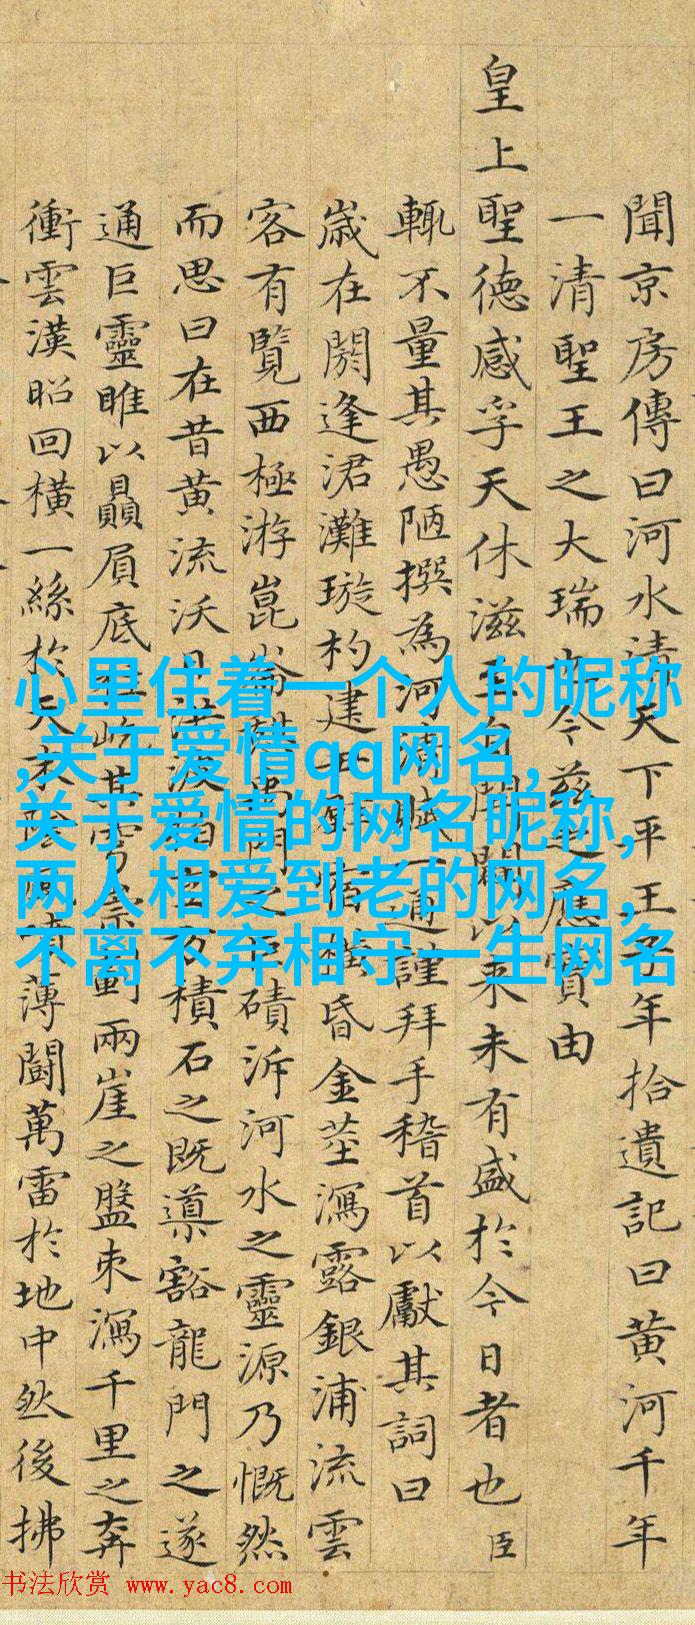 聞京房傳曰河水清天下平王子年拾遺記曰黄河千年
一清聖王之大瑞今兹應實由
皇上聖德感孚天休滋至自開闢以來未有盛於今日者也臣
輒不量其愚陋撰為河清賦一通謹拜手稽首以獻其詞曰
歲在閼逢涒灘璇杓建昏金莖瀉露銀浦流雲
客有覽西極游崑崙門之磧泝河水之靈源乃慨然
而思曰在昔黄流沃日洪波方積石之既導豁龍門之遂
通巨靈雎以贔屓底柱屹其兩崖之盤束瀉千里之奔
衝雲漢昭回横一絲於天薄鬭萬雷於地中然後拂
心里住着一个人的昵称
,关于爱情qq网名,
关于爱情的网名昵称,
两人相爱到老的网名,
不离不弃相守一生网名
书法欣赏 www.yac8.com